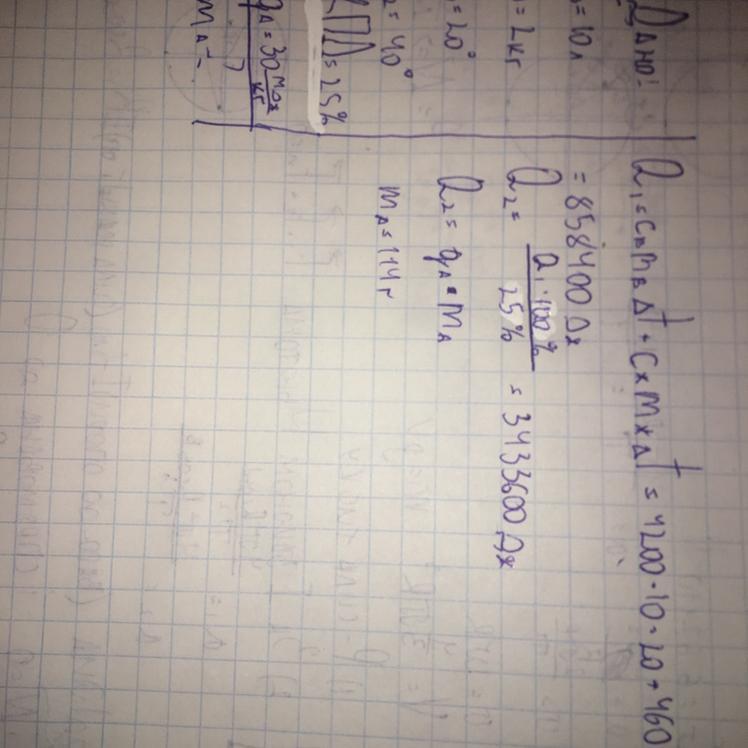 Дано:
= 10л
= 2кг
= 20°
= 40°
КПД = 25%
qд = 30 МДж/кг
mд - ?
Q₁ = CвmвΔt + CжmжΔt = 4200·10·20 + 460
= 858400 Дж
Q₂ = Q₁·100% / 25% = 3433600 Дж
Q₂ = qд · mд
mд = 114г